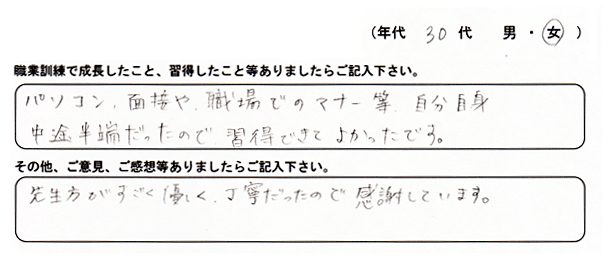 （年代 30 代 男 ・ 女 ）
職業訓練で成長したこと、習得したこと等ありましたらご記入下さい。
パソコン、面接や、職場でのマナー等、自分自身
中途半端だったので、習得できて よかったです。
その他、ご意見、ご感想等ありましたらご記入下さい。
先生方がすごく優しく、丁寧だったので 感謝しています。